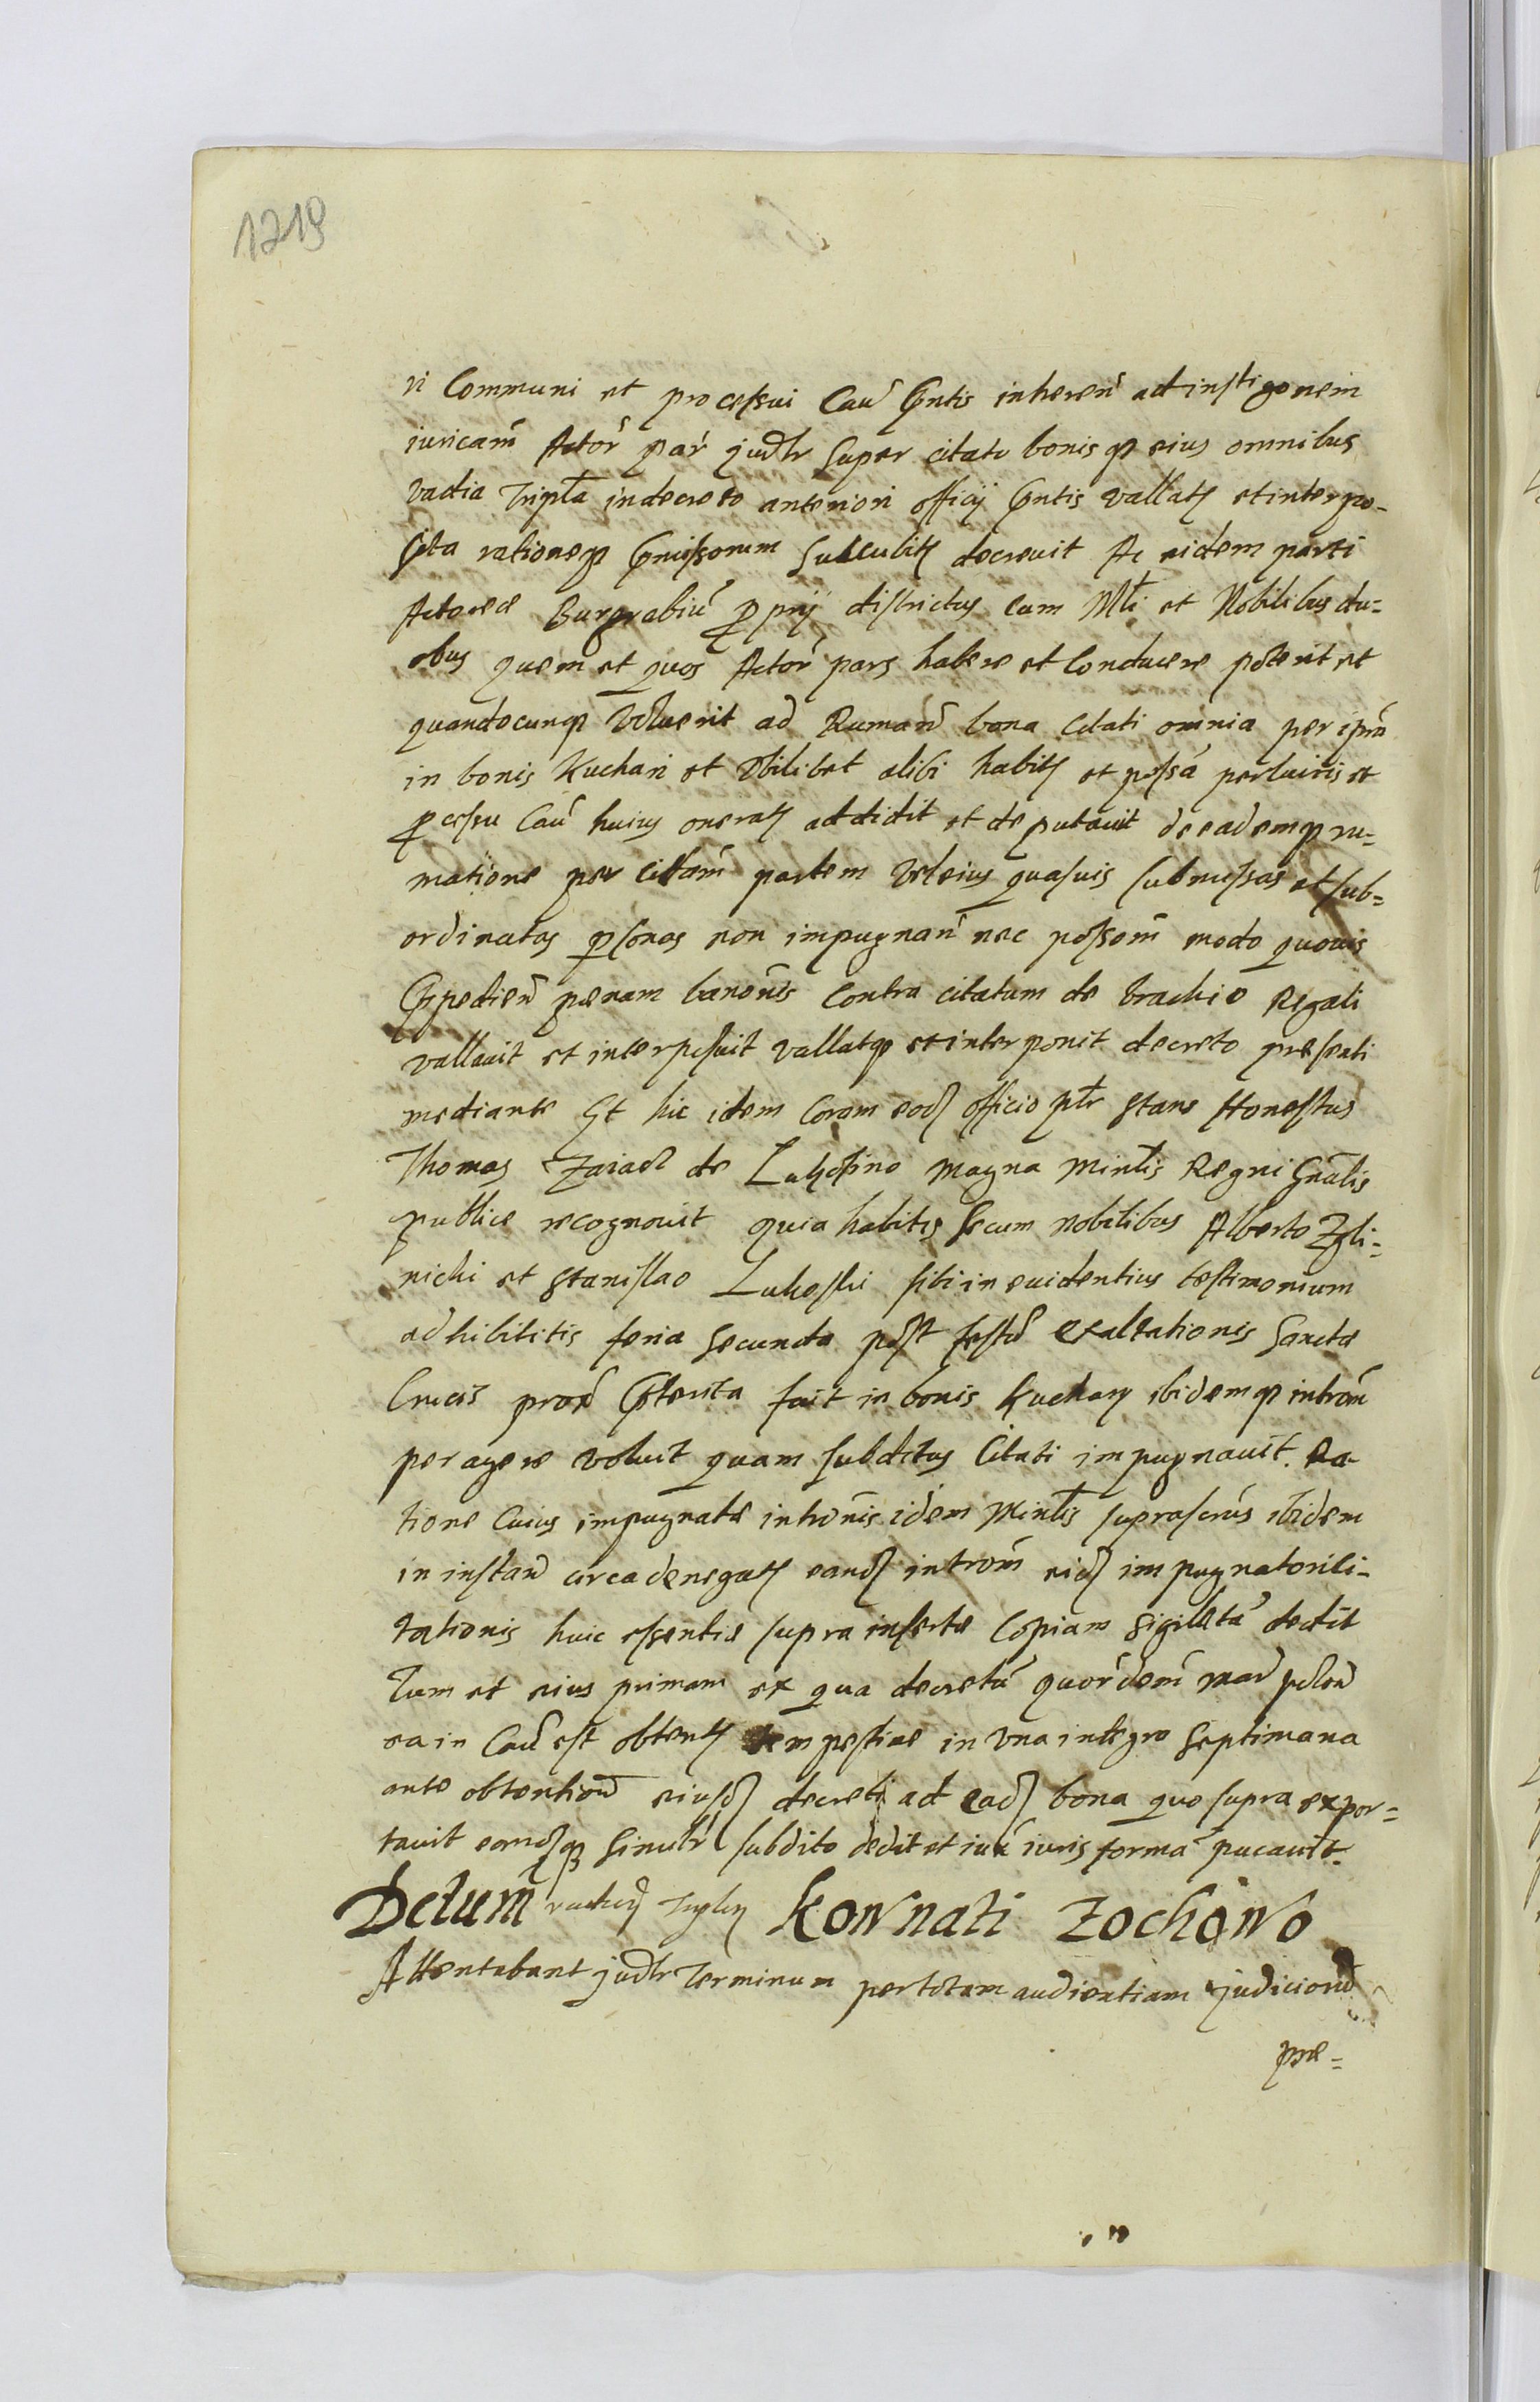 1219
ri Communi et processui Cau͠ Gntis inheren͠ ad instigonem
iuricam͠ Actor͠ par͠ judr super citato bonisq eius omnibus
vadia Tripla in decreto anteriori officij Gntis vallatȝ et interpo-
sita rationeq succubitȝ decrevit Ac eidem parti
Actoreæ Burgrabiu͠ pprij districtus cum Mli et Nobilibus du=
obus quem et quos Actor͠ pars habere et Conducere poterit et
quandocunq Voluerit ad Ruman͠ bona Citati omnia per ipm͠
in bonis Kuchari et Vbilibet alibi habitȝ et possa͠ perlucris et
pcessu Cau͠ huius oneratȝ addidit et deputauit de eademq ru=
matione per citam͠ partem Vel eius quasuis submissas et sub=
ordinatas psonas non impugnan͠ nec possom͠ modo quouis
Gpedien͠ pænam banonis͠ Contra citatum de brachio Regali
vallauit et interposuit vallatq et interponit decreto præsenti
mediante Et hic idem Coram eodȝ officio plr stans Honestus
Thomas de magna Minlis Regni Gnalis
publice recognouit quia habitis secum nobilibus Alberto Zgli=
nichi et Stanislao Lukoski sibi in euidentius testimonium
adhibititis feria secunda post festu͠ Exaltationis Sanctæ
Crucis prox͠ Gterita fuit in bonis Kuchary ibidemq introm͠
peragere voluit quam subditus Citati impugnauit. Ra-
tione Cuius impugnatæ intronis͠ idem Minlis suprascrus͠ ibidem
in instan͠ circa denegatȝ eandȝ introm͠ eidȝ impugnatori li-
tationis huic essentiæ supra insertæ Copiam sigillata͠ dedit
Tum et eius primam ex qua decretu͠ polon͠
ea in Cau͠ est obtentȝ tempestiue in Vna integro Septimana
ante obtention͠ eiusdȝ decreti ad eadȝ bona quo supra expor=
tauit eamdȝq simulr subdito dedit et iux͠ iuris forma͠ pucauit.
Dctum Kownati Zochowo
Attentabant judr Terminum per totam audientiam judicioru͠
præ=